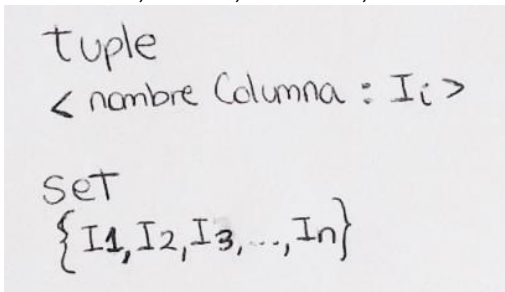 tuple
< nombre Columna : Ii >
set
{I1, I2, I3, ..., In}